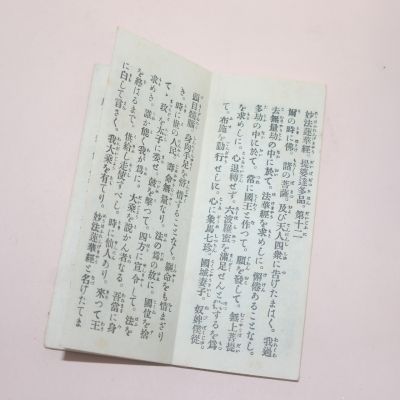 妙法蓮華經。提婆達多品。第十二
爾の時に佛。諸の菩薩。及び天人四衆に告げたまはく。我過
去無量劫の中に於て。法華經を求めしに。懈倦あることなし。
多劫の中に於て。常に國王と作つて。願を發して。無上菩提
を求めしに。心退轉せず。六波羅蜜を滿足せんと欲するを爲
て。布施を勤行せしに。心に象馬七珍。國城妻子。奴婢僕從。
頭目髓腦。身肉手足を悋惜することなし。軀命をも惜まざり
き。時に世の人民。壽命無量なり。法の爲の故に。國位を捨
てゝ。政を太子に委せ。鼓を擊つて。四方に宣令して。法を
求めき。誰か能く我が爲に。大乘を說かん者なる。吾當に身
を終るまで。供給し走使すべし。時に仙人あり。來つて王
に白して言さく。我大乘を有り。妙法蓮華經と名けたてま